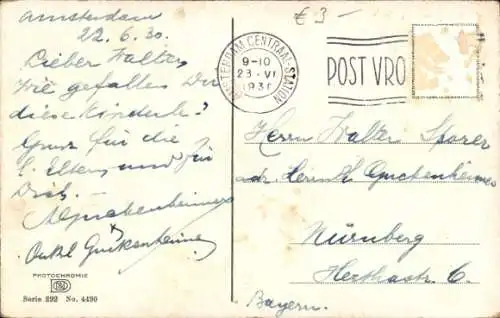 Amsterdam
22.6.30.
Lieber Walter
Wie gefallen Dir
diese Kinderle?
Gruss für die
l. Eltern und für
Dich.
Onkel Guckenheimer
PHOTOCHROMIE
Serie 292 No. 4490
€ 3-
AMSTERDAM CENTRAAL STATION
9-10
23 VI
193
POST VRO
Herrn Walter
adr. Heinrich Guckenheimer
Nürnberg
Herthastr 6.
Bayern.